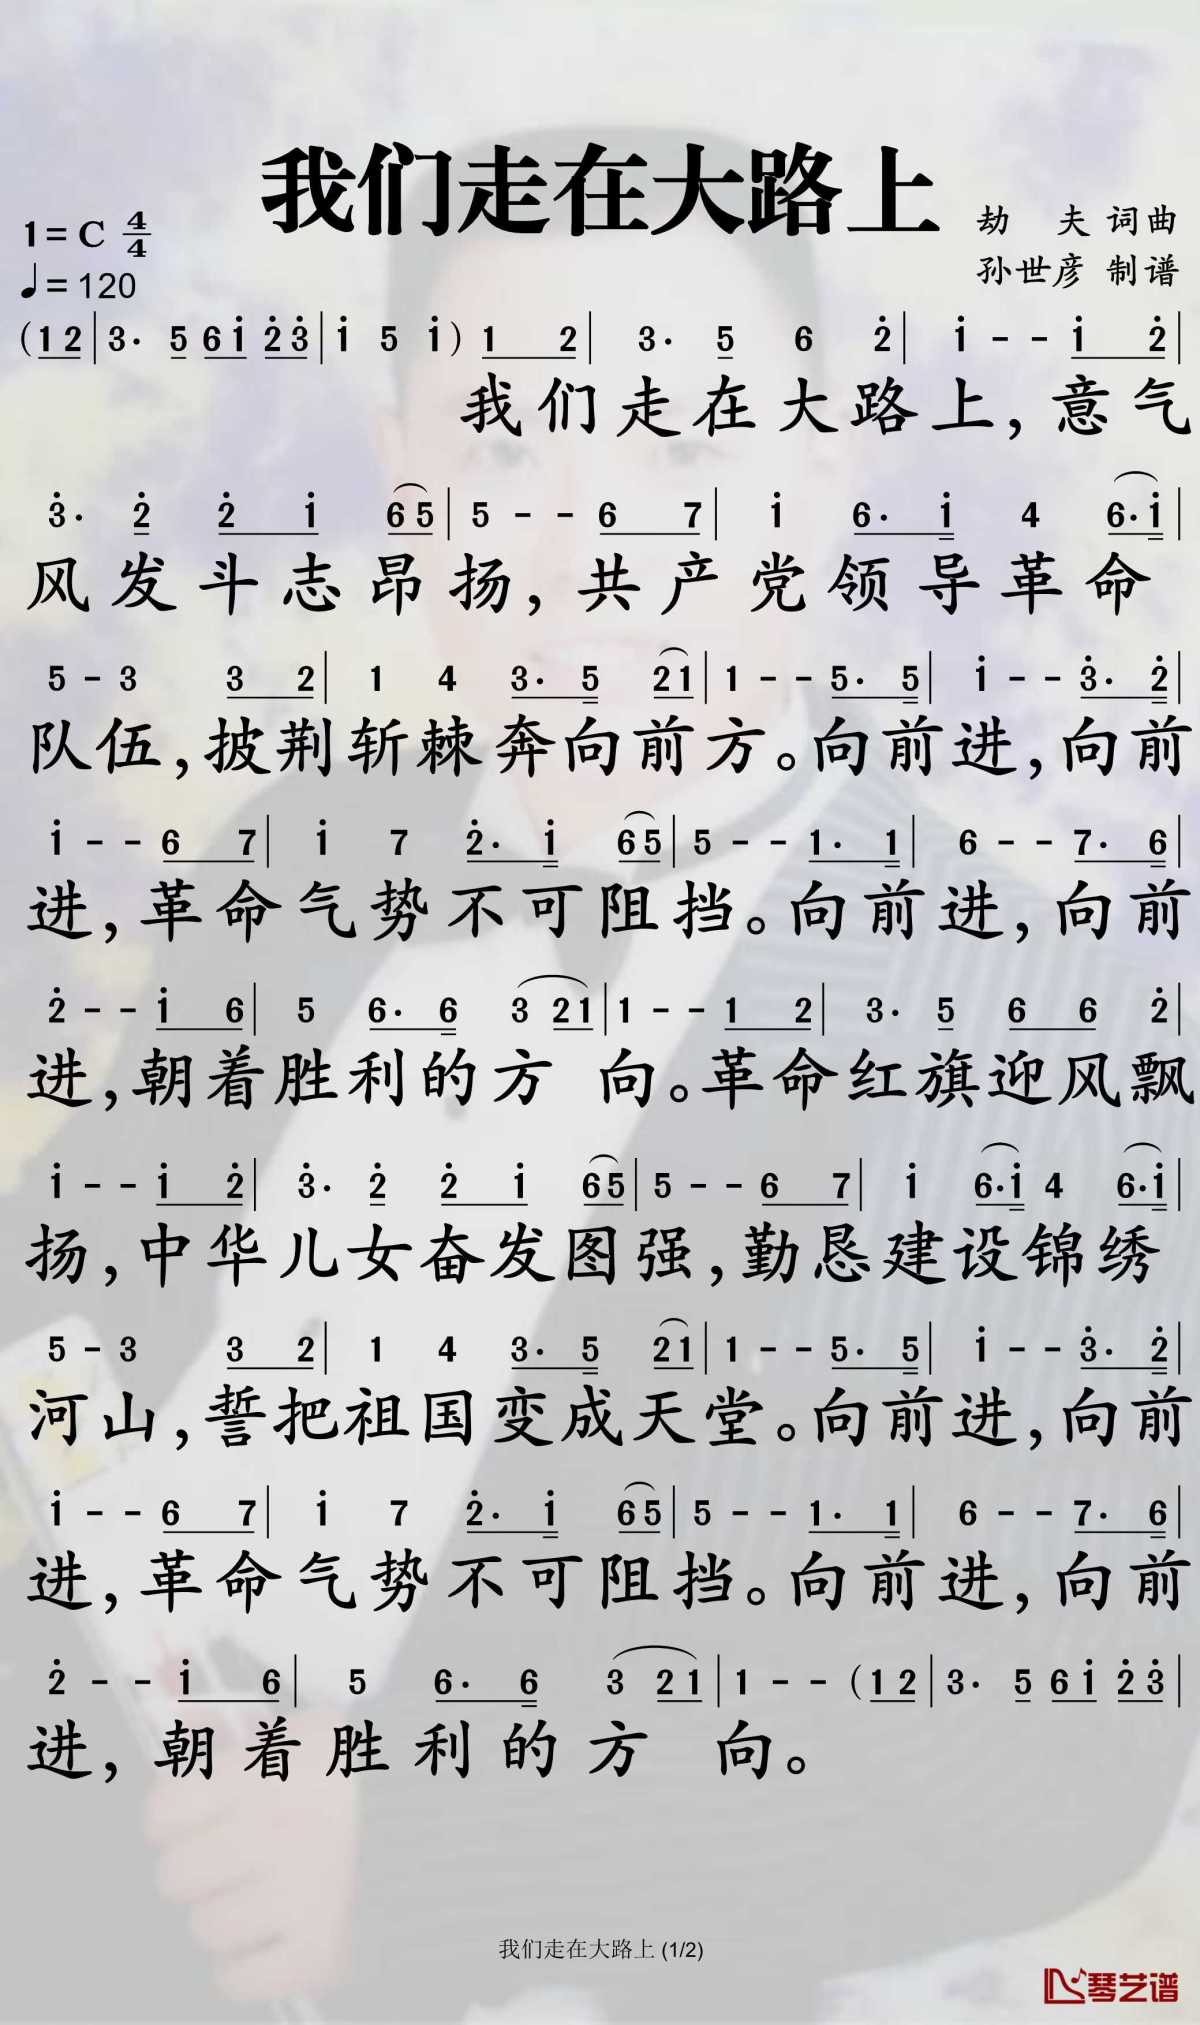 我们走在大路上
1=C 4/4
♩=120
劫 夫 词曲
孙世彦 制谱
(1 2 | 3· 5 6 i̇ 2̇ 3̇ | i̇ 5 i̇ ) 1 2 | 3· 5 6 2̇ | i̇ - - i̇ 2̇ |
我们走在大路上,意气
3̇· 2̇ 2̇ i̇ 6 5 | 5 - - 6 7 | i̇ 6· i̇ 4 6· i̇ |
风发斗志昂扬,共产党领导革命
5 - 3 3 2 | 1 4 3· 5 2 1 | 1 - - 5· 5 | i̇ - - 3̇· 2̇ |
队伍,披荆斩棘奔向前方。向前进,向前
i̇ - - 6 7 | i̇ 7 2̇· i̇ 6 5 | 5 - - 1· 1 | 6 - - 7· 6 |
进,革命气势不可阻挡。向前进,向前
2̇ - - i̇ 6 | 5 6· 6 3 2 1 | 1 - - 1 2 | 3· 5 6 6 2̇ |
进,朝着胜利的方 向。革命红旗迎风飘
i̇ - - i̇ 2̇ | 3̇· 2̇ 2̇ i̇ 6 5 | 5 - - 6 7 | i̇ 6· i̇ 4 6· i̇ |
扬,中华儿女奋发图强,勤恳建设锦绣
5 - 3 3 2 | 1 4 3· 5 2 1 | 1 - - 5· 5 | i̇ - - 3̇· 2̇ |
河山,誓把祖国变成天堂。向前进,向前
i̇ - - 6 7 | i̇ 7 2̇· i̇ 6 5 | 5 - - 1· 1 | 6 - - 7· 6 |
进,革命气势不可阻挡。向前进,向前
2̇ - - i̇ 6 | 5 6· 6 3 2 1 | 1 - - (1 2 | 3· 5 6 i̇ 2̇ 3̇ |
进,朝着胜利的方 向。
我们走在大路上 (1/2)
琴艺谱